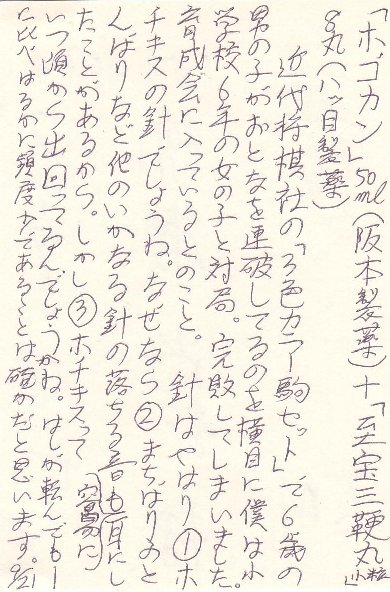 「ホゴカン」50ml(阪本製薬)+「至宝三鞭丸」小粒
8丸(八ッ目製薬)
近代将棋社の「3色カラー駒セット」で6歳の
男の子がおとなを連破してるのを横目に僕は小
学校6年の女の子と対局。完敗してしまいました。
育成会に入っているとのこと。 針はやはり①ホ
チキスの針でしょうね。なぜなら②まちばりのと
んばりなど他のいかなる針の落ちる音も耳にし
たことがあるから。しかし③ホチキスって
いつ頃から出回ってるんでしょうかね。はしが転んでも―
に比べはるかに頻度大であることは確かだと思います。9/21